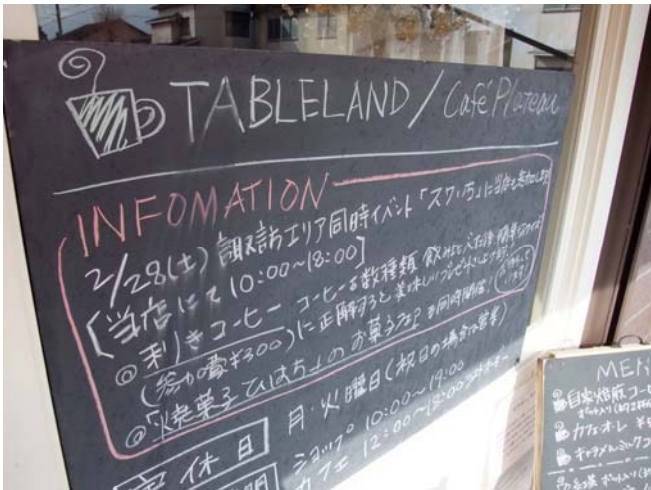 TABLELAND / Café Plateau
INFOMATION
2/28(土) 諏訪エリア同時イベント「スワいち」に当店も参加します
[当店にて 10:00~18:00]
◎利きコーヒー コーヒーを数種類 飲みくらべた後、簡単なクイズ
(参加費¥300)に正解すると美味しいプレゼントさしあげます!
◎「焼菓子 ひはち」のお菓子フェアも同時開催!
定休日 月・火曜日(祝日の場合は営業)
ショップ 10:00~19:00
カフェ 12:00~18:00
MEN
自家焙煎コーヒ
カフェオレ
キャラメルミルクコ
紅茶